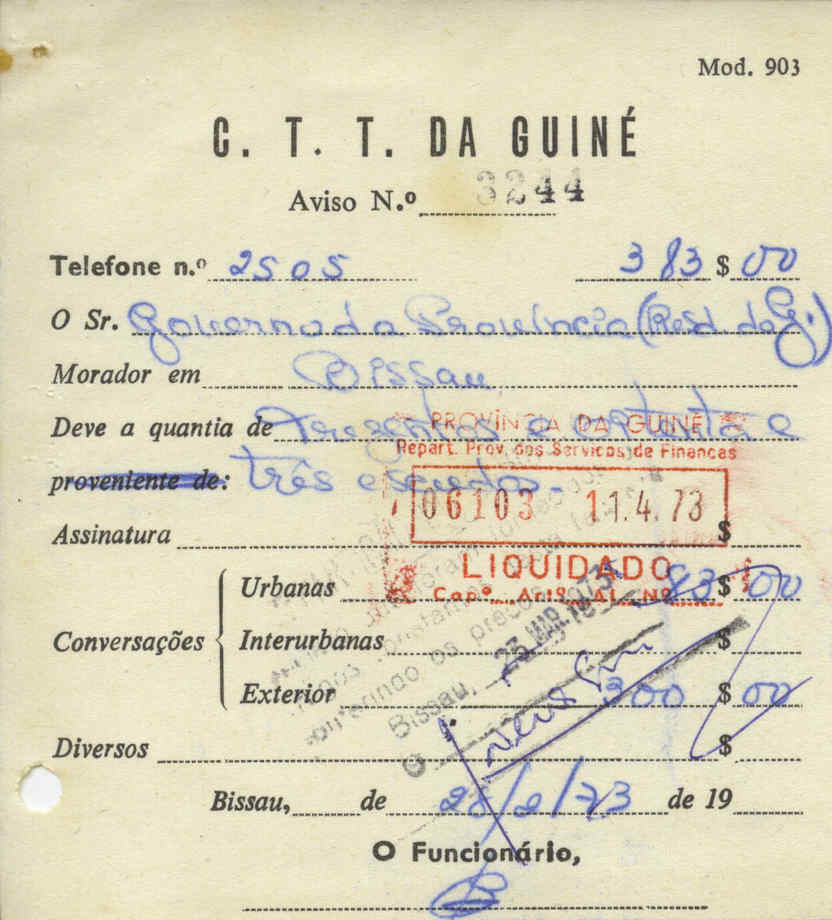 Mod. 903
C. T. T. DA GUINÉ
Aviso N.º 3244
Telefone n.º 2505 383 $ 00
O Sr. Governo da Província (Resd. do G.)
Morador em Bissau
Deve a quantia de Trezentos e oitenta e
PROVÍNCIA DA GUINÉ
Repart. Prov. dos Servicos de Financas
proveniente de: três escudos.-
06103 11.4.73
Assinatura $
LIQUIDADO
Urbanas 83 $ 00
Cap.º Art.º Al. Nº
Conversações
Interurbanas $
Exterior 300 $ 00
Bissau, 23 MAR 1973
O
Diversos $
Bissau, de 28/2/73 de 19
O Funcionário,